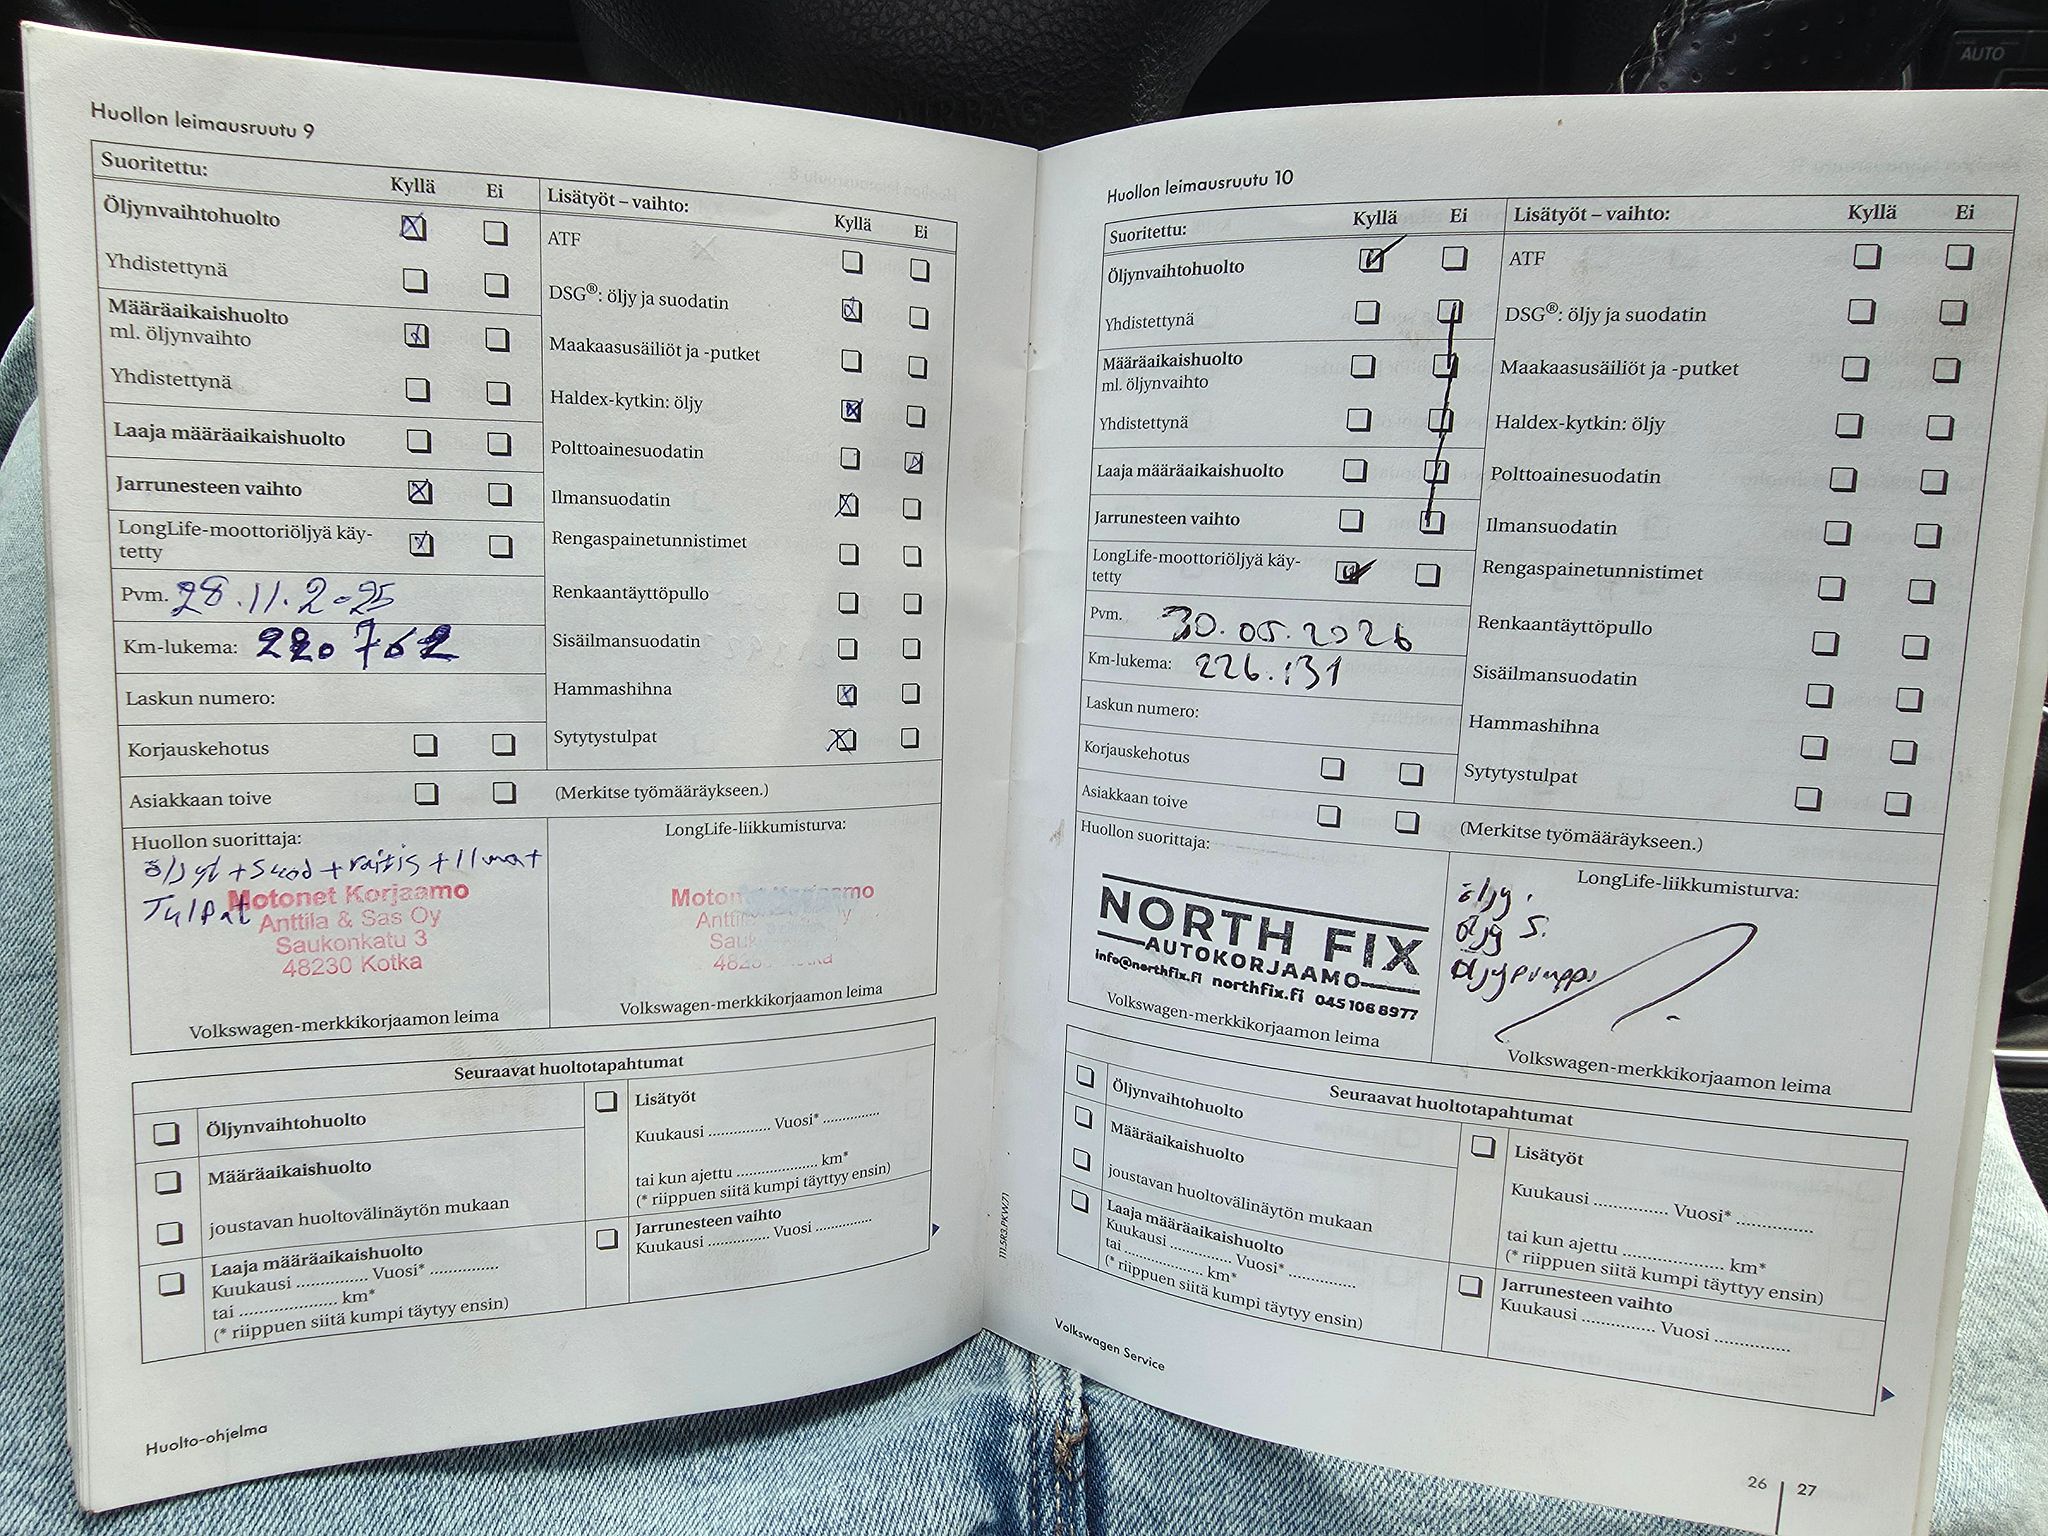 AUTO
AIRBAG
Huollon leimausruutu 9
Suoritettu: Kyllä Ei
Öljynvaihtohuolto
Yhdistettynä
Määräaikaishuolto
ml. öljynvaihto
Yhdistettynä
Laaja määräaikaishuolto
Jarrunesteen vaihto
LongLife-moottoriöljyä käy-
tetty
Pvm. 28.11.2025
Km-lukema: 220762
Laskun numero:
Korjauskehotus
Asiakkaan toive
Lisätyöt – vaihto: Kyllä Ei
ATF
DSG®: öljy ja suodatin
Maakaasusäiliöt ja -putket
Haldex-kytkin: öljy
Polttoainesuodatin
Ilmansuodatin
Rengaspainetunnistimet
Renkaantäyttöpullo
Sisäilmansuodatin
Hammashihna
Sytytystulpat
(Merkitse työmääräykseen.)
Huollon suorittaja:
öljyt + suod + raitis + ilmat
Tulpat
Motonet Korjaamo
Anttila & Sas Oy
Saukonkatu 3
48230 Kotka
Volkswagen-merkkikorjaamon leima
LongLife-liikkumisturva:
Volkswagen-merkkikorjaamon leima
Seuraavat huoltotapahtumat
Öljynvaihtohuolto
Määräaikaishuolto
joustavan huoltovälinäytön mukaan
Laaja määräaikaishuolto
Kuukausi ............... Vuosi* ..............
tai .................... km*
(* riippuen siitä kumpi täytyy ensin)
Lisätyöt
Kuukausi ............. Vuosi* ............
tai kun ajettu ................. km*
(* riippuen siitä kumpi täyttyy ensin)
Jarrunesteen vaihto
Kuukausi ............. Vuosi ............
Huolto-ohjelma
Huollon leimausruutu 10
Suoritettu: Kyllä Ei
Öljynvaihtohuolto
Yhdistettynä
Määräaikaishuolto
ml. öljynvaihto
Yhdistettynä
Laaja määräaikaishuolto
Jarrunesteen vaihto
LongLife-moottoriöljyä käy-
tetty
Pvm. 30.05.2026
Km-lukema: 226.131
Laskun numero:
Korjauskehotus
Asiakkaan toive
Lisätyöt – vaihto: Kyllä Ei
ATF
DSG®: öljy ja suodatin
Maakaasusäiliöt ja -putket
Haldex-kytkin: öljy
Polttoainesuodatin
Ilmansuodatin
Rengaspainetunnistimet
Renkaantäyttöpullo
Sisäilmansuodatin
Hammashihna
Sytytystulpat
(Merkitse työmääräykseen.)
Huollon suorittaja:
NORTH FIX
AUTOKORJAAMO
info@northfix.fi northfix.fi 045 106 8977
Volkswagen-merkkikorjaamon leima
LongLife-liikkumisturva:
öljy.
öljy S.
Volkswagen-merkkikorjaamon leima
Seuraavat huoltotapahtumat
Öljynvaihtohuolto
Määräaikaishuolto
joustavan huoltovälinäytön mukaan
Laaja määräaikaishuolto
Kuukausi ............... Vuosi* ..............
tai .................... km*
(* riippuen siitä kumpi täytyy ensin)
Lisätyöt
Kuukausi ............. Vuosi* .............
tai kun ajettu ................. km*
(* riippuen siitä kumpi täyttyy ensin)
Jarrunesteen vaihto
Kuukausi ............. Vuosi .............
111.5R3.PKW.71
Volkswagen Service
26 | 27